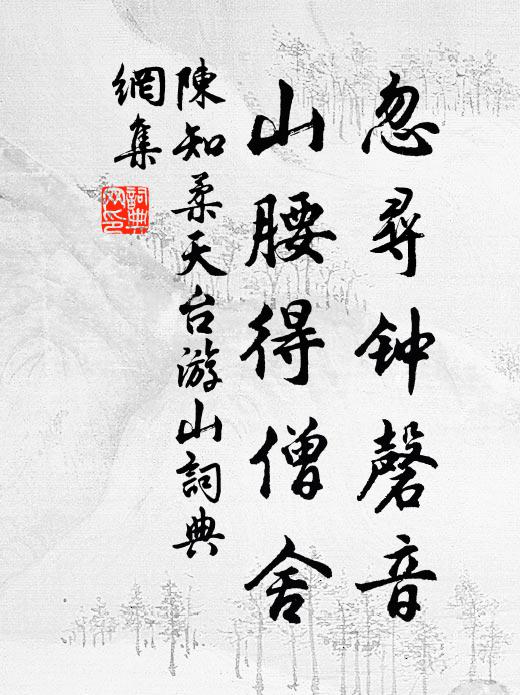 忽寻钟磬音
山腰得僧舍
陳知柔天台游山詞典
網集
詞典網印